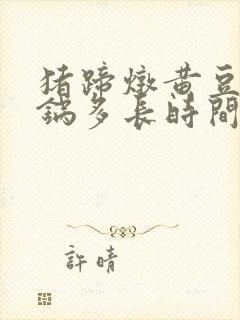 猪蹄燉黃豆
鍋多長時間
許晴